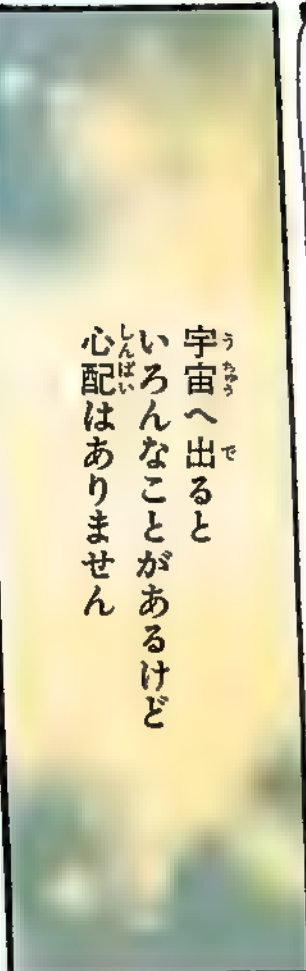 宇宙へ出ると
いろんなことがあるけど
心配はありません